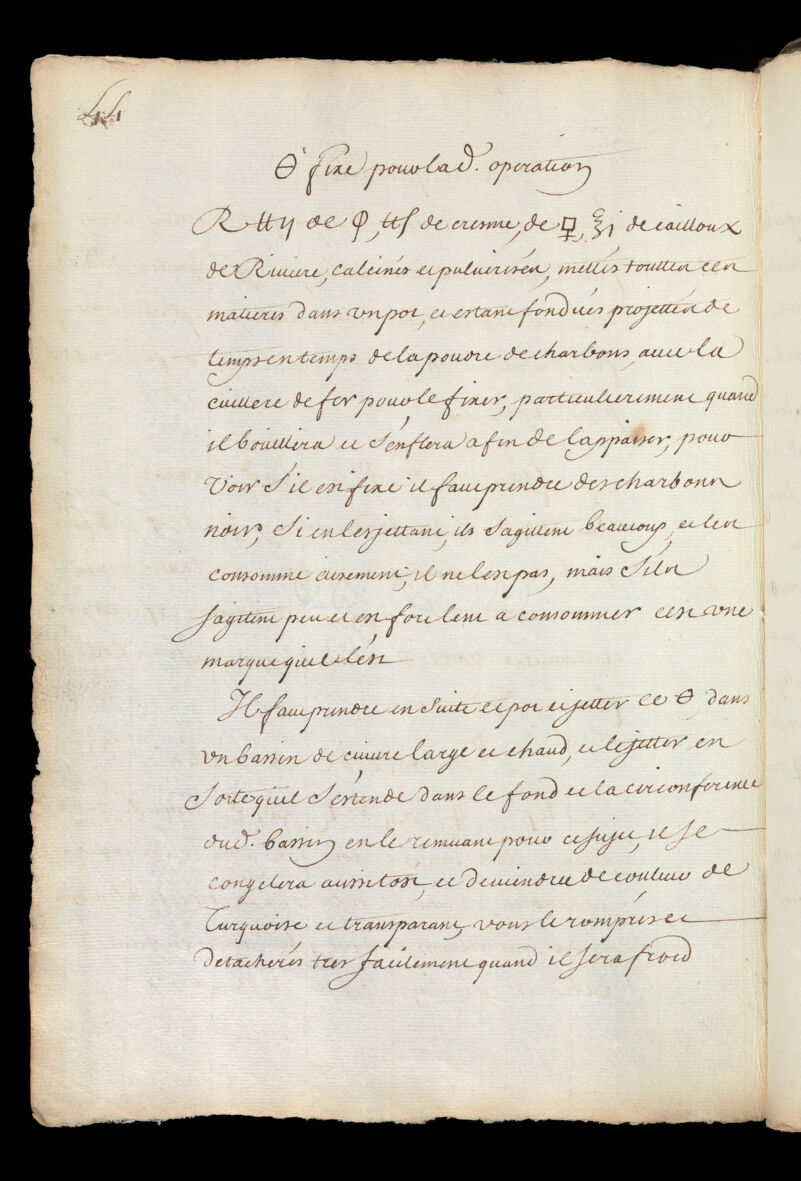 44
🜔 fixe pour la d. operation
R ℔ ij de 🜕, ℔ ſ de cresme, de 🜿, ℥ j de cailloux
de Riuiere, calcinés et puluerisés, mettés touttes ces
matieres dans vn pot, et estant fonduës projettés de
temps en temps de la poudre de charbons, auec la
cuillere de fer pour le fixer, particulierement quand
il boüillira et s'enflera afin de l'appaiser, pour
voir s'il est fixe il faut prendre des charbons
noir, si en les jettant, ils s'agittent beaucoup, et les
consomme aisement, il ne l'est pas, mais s'ils
s'agittent peu et est fort lent a consommer c'est vne
marque qu'il l'est
Il faut prendre en suite le pot et jetter ce 🜔 dans
vn bassin de cuiure large et chaud, et le jetter en
sorte qu'il s'estende dans le fond et la circonference
dud. bassin en le remuant pour ce sujet, il se
congelera aussitost, et deuiendra de couleur de
Turquoise et transparant, vous le romprés et
detacherés tres facilement quand il sera froid